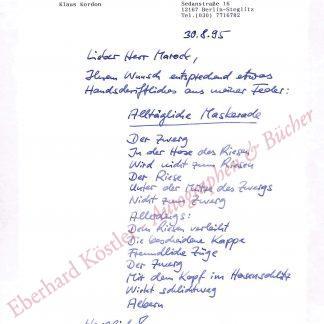 Klaus Kordon
Sedanstraße 16
12167 Berlin-Steglitz
Tel.(030) 7716782
30.8.95
Lieber Herr Marock,
Ihrem Wunsch entsprechend etwas
Handschriftliches aus meiner Feder:
Alltägliche Maskerade
Der Zwerg
In der Hose des Riesen
Wird nicht zum Riesen
Der Riese
Unter der Mütze des Zwergs
Nicht zum Zwerg
Allerdings:
Dem Riesen verleiht
Die bescheidene Kappe
Freundliche Züge
Der Zwerg
Mit dem Kopf im Hosenschlitz
Wirkt schlichtweg
Albern
Eberhard Köstler Autographen & Bücher